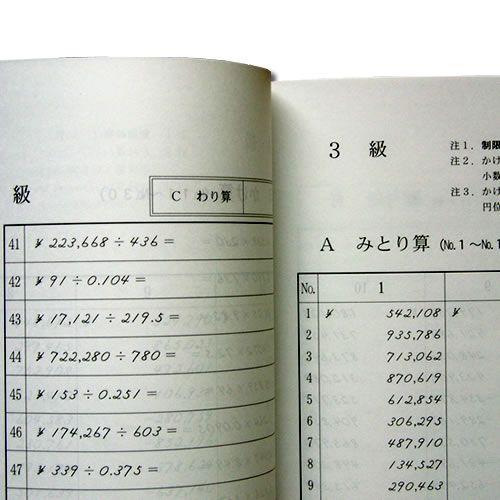 級
C わり算
41 ¥ 223,668 ÷ 436 =
42 ¥ 91 ÷ 0.104 =
43 ¥ 17,121 ÷ 219.5 =
44 ¥ 722,280 ÷ 780 =
45 ¥ 153 ÷ 0.251 =
46 ¥ 174,267 ÷ 603 =
47 ¥ 339 ÷ 0.375 =
3 級
注1．制限
注2．かけ
小数
注3．かけ
円位
A みとり算 (No.1～No.1
No. 1
1 ¥ 542,108 ¥
2 935,786
3 713,062
4 870,619
5 612,854
6 306,295
7 487,910
8 134,527
9 290,463